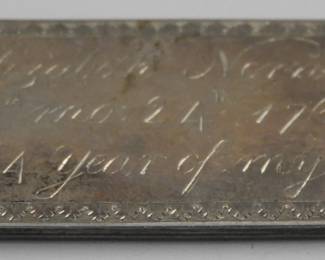 izabeth Norr
mo: 24th 17
4 Year of my